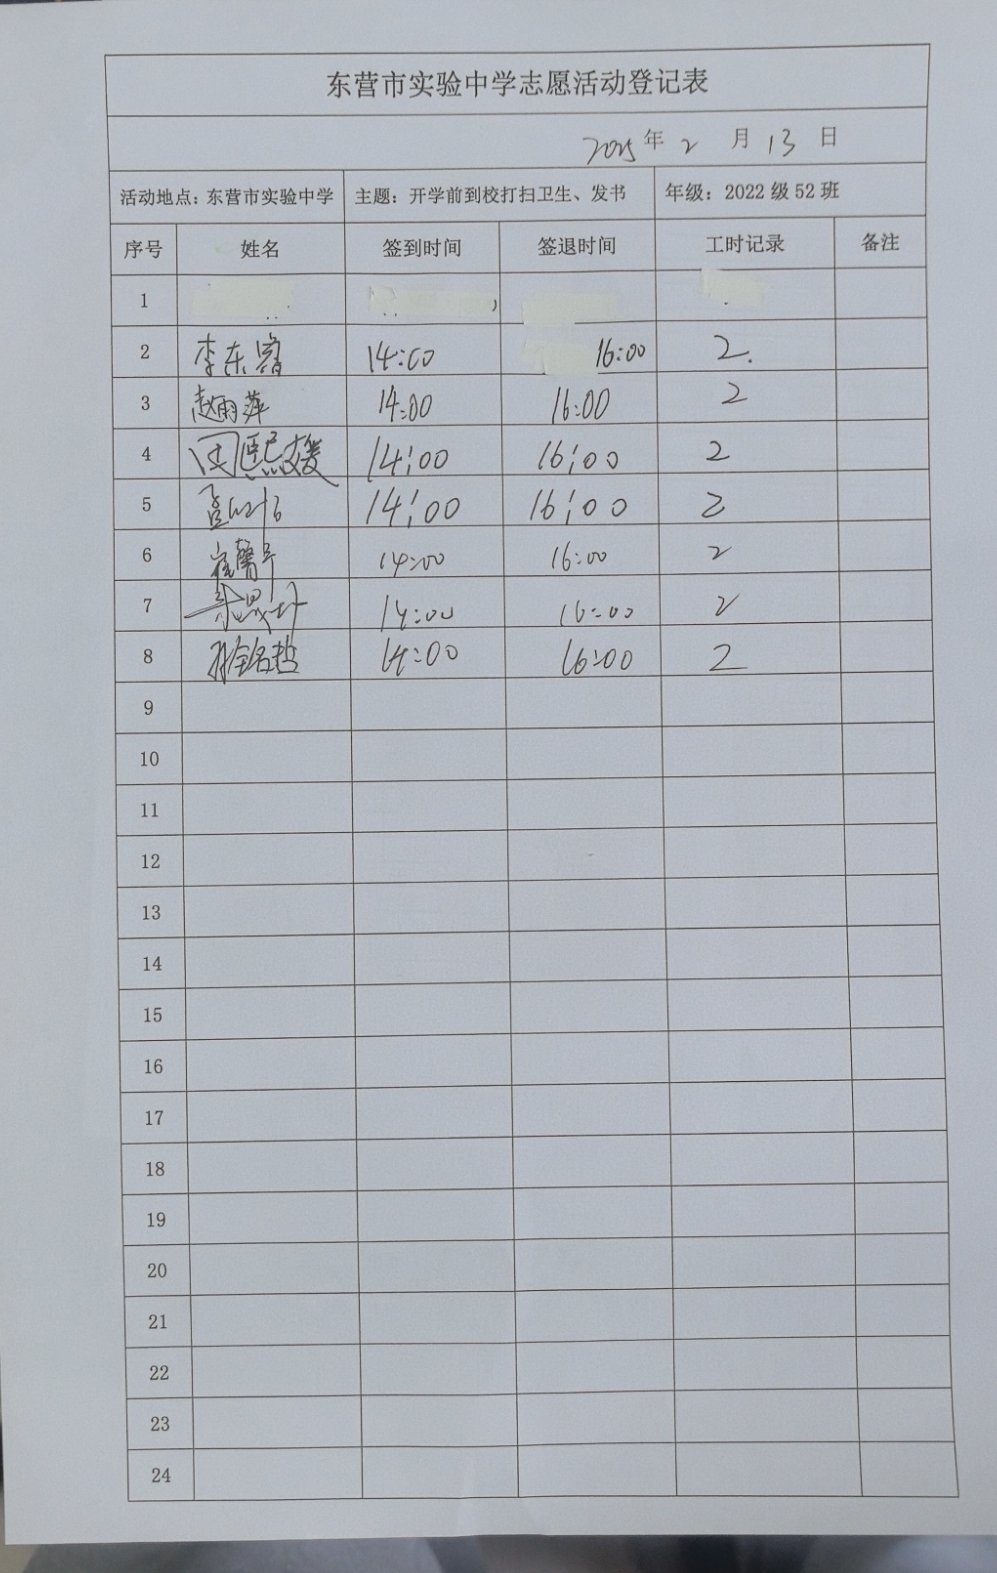 东营市实验中学志愿活动登记表
2025年2月13日
活动地点：东营市实验中学 主题：开学前到校打扫卫生、发书 年级：2022级52班
序号 姓名 签到时间 签退时间 工时记录 备注
1
2 李东 14:00 16:00 2.
3 赵雨萍 14:00 16:00 2
4 田熙媛 14:00 16:00 2
5 14:00 16:00 2
6 崔馨 14:00 16:00 2
7 14:00 16:00 2
8 14:00 16:00 2
9
10
11
12
13
14
15
16
17
18
19
20
21
22
23
24